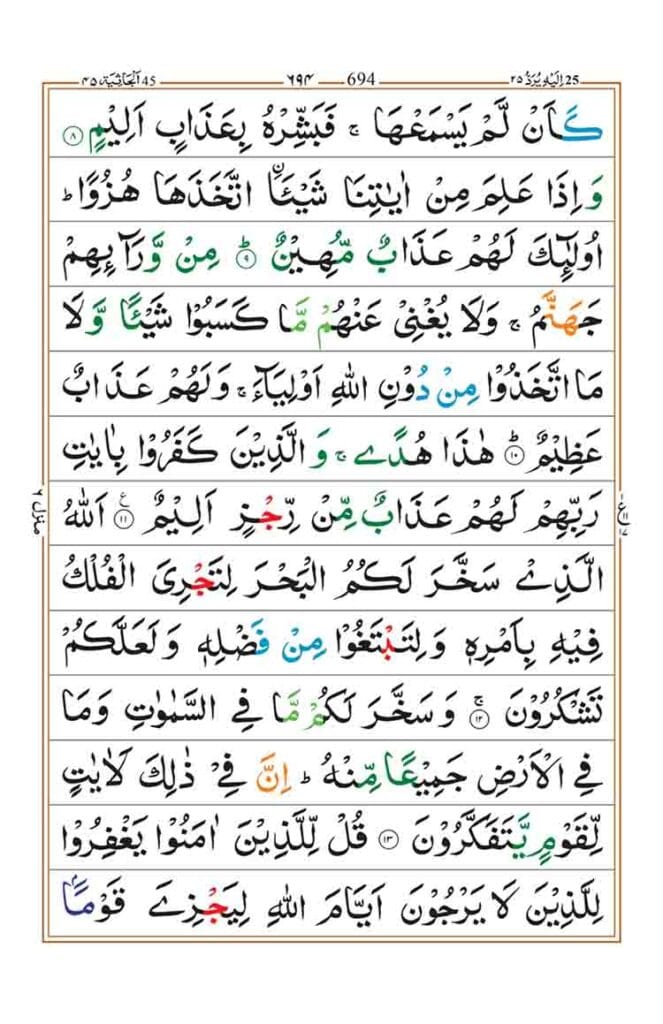 الجاثية ٤٥ 45 ٦٩٤ 694 اليه يرد ٢٥ 25
كَاَنْ لَّمْ يَسْمَعْهَا ۚ فَبَشِّرْهُ بِعَذَابٍ اَلِيْمٍ ۸
وَ اِذَا عَلِمَ مِنْ اٰيٰتِنَا شَيْـًٔا ۨاتَّخَذَهَا هُزُوًا ؕ
اُولٰٓئِكَ لَهُمْ عَذَابٌ مُّهِيْنٌ ؕ ۹ مِنْ وَّرَآئِهِمْ
جَهَنَّمُ ۚ وَلَا يُغْنِيْ عَنْهُمْ مَّا كَسَبُوْا شَيْـًٔا وَّلَا
مَا اتَّخَذُوْا مِنْ دُوْنِ اللّٰهِ اَوْلِيَآءَ ۚ وَلَهُمْ عَذَابٌ
عَظِيْمٌ ؕ ۱۰ هٰذَا هُدًى ۚ وَ الَّذِيْنَ كَفَرُوْا بِاٰيٰتِ
رَبِّهِمْ لَهُمْ عَذَابٌ مِّنْ رِّجْزٍ اَلِيْمٌ ۱۱ ع اَللّٰهُ
الَّذِيْ سَخَّرَ لَكُمُ الْبَحْرَ لِتَجْرِيَ الْفُلْكُ
فِيْهِ بِاَمْرِهٖ وَلِتَبْتَغُوْا مِنْ فَضْلِهٖ وَلَعَلَّكُمْ
تَشْكُرُوْنَ ۚ ۱۲ وَسَخَّرَ لَكُمْ مَّا فِي السَّمٰوٰتِ وَمَا
فِي الْاَرْضِ جَمِيْعًا مِّنْهُ ؕ اِنَّ فِيْ ذٰلِكَ لَاٰيٰتٍ
لِّقَوْمٍ يَّتَفَكَّرُوْنَ ۱۳ قُلْ لِّلَّذِيْنَ اٰمَنُوْا يَغْفِرُوْا
لِلَّذِيْنَ لَا يَرْجُوْنَ اَيَّامَ اللّٰهِ لِيَجْزِيَ قَوْمًاۢ
منزل ٦